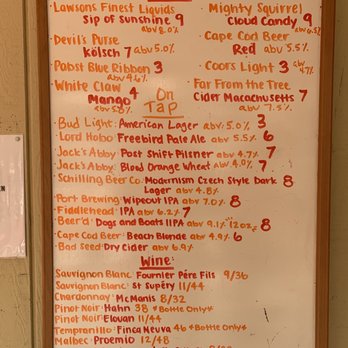 Lawsons Finest Liquids
Sip of Sunshine 9
abv 8.0%
Mighty Squirrel
Cloud Candy 9
abv 6.5%
Devil's Purse
Kölsch 7 abv 5.0%
Cape Cod Beer
Red abv 5.5%
Pabst Blue Ribbon 3
abv 4.6%
Coors Light 3 abv
4.7%
White Claw 4
Mango
abv 5.0%
Far From the Tree
Cider Macachusetts 7
abv 7.3%
On
Tap
Bud Light: American Lager abv 5.0% 3
Lord Hobo: Freebird Pale Ale abv 5.5% 6
Jack's Abby: Post Shift Pilsner abv 4.7% 7
Jack's Abby: Blood Orange Wheat abv 4.0% 7
Schilling Beer Co: Modernism Czech Style Dark 8
Lager abv 4.8%
Port Brewing: Wipeout IPA abv 7.0% 8
Fiddlehead: IPA abv 6.2% 7
Beer'd: Dogs and Boats IIPA abv 9.1% *12oz* 8
Cape Cod Beer: Beach Blonde abv 4.9% 6
Bad Seed: Dry Cider abv 6.9%
Wine:
Sauvignon Blanc: Fournier Pére Fils 9/36
Sauvignon Blanc: St Supéry 11/44
Chardonnay: McManis 8/32
Pinot Noir: Hahn 38 *Bottle Only*
Pinot Noir: Elouan 11/44
Tempranillo: Finca Neuva 46 *Bottle Only*
Malbec: Proemio 12/48